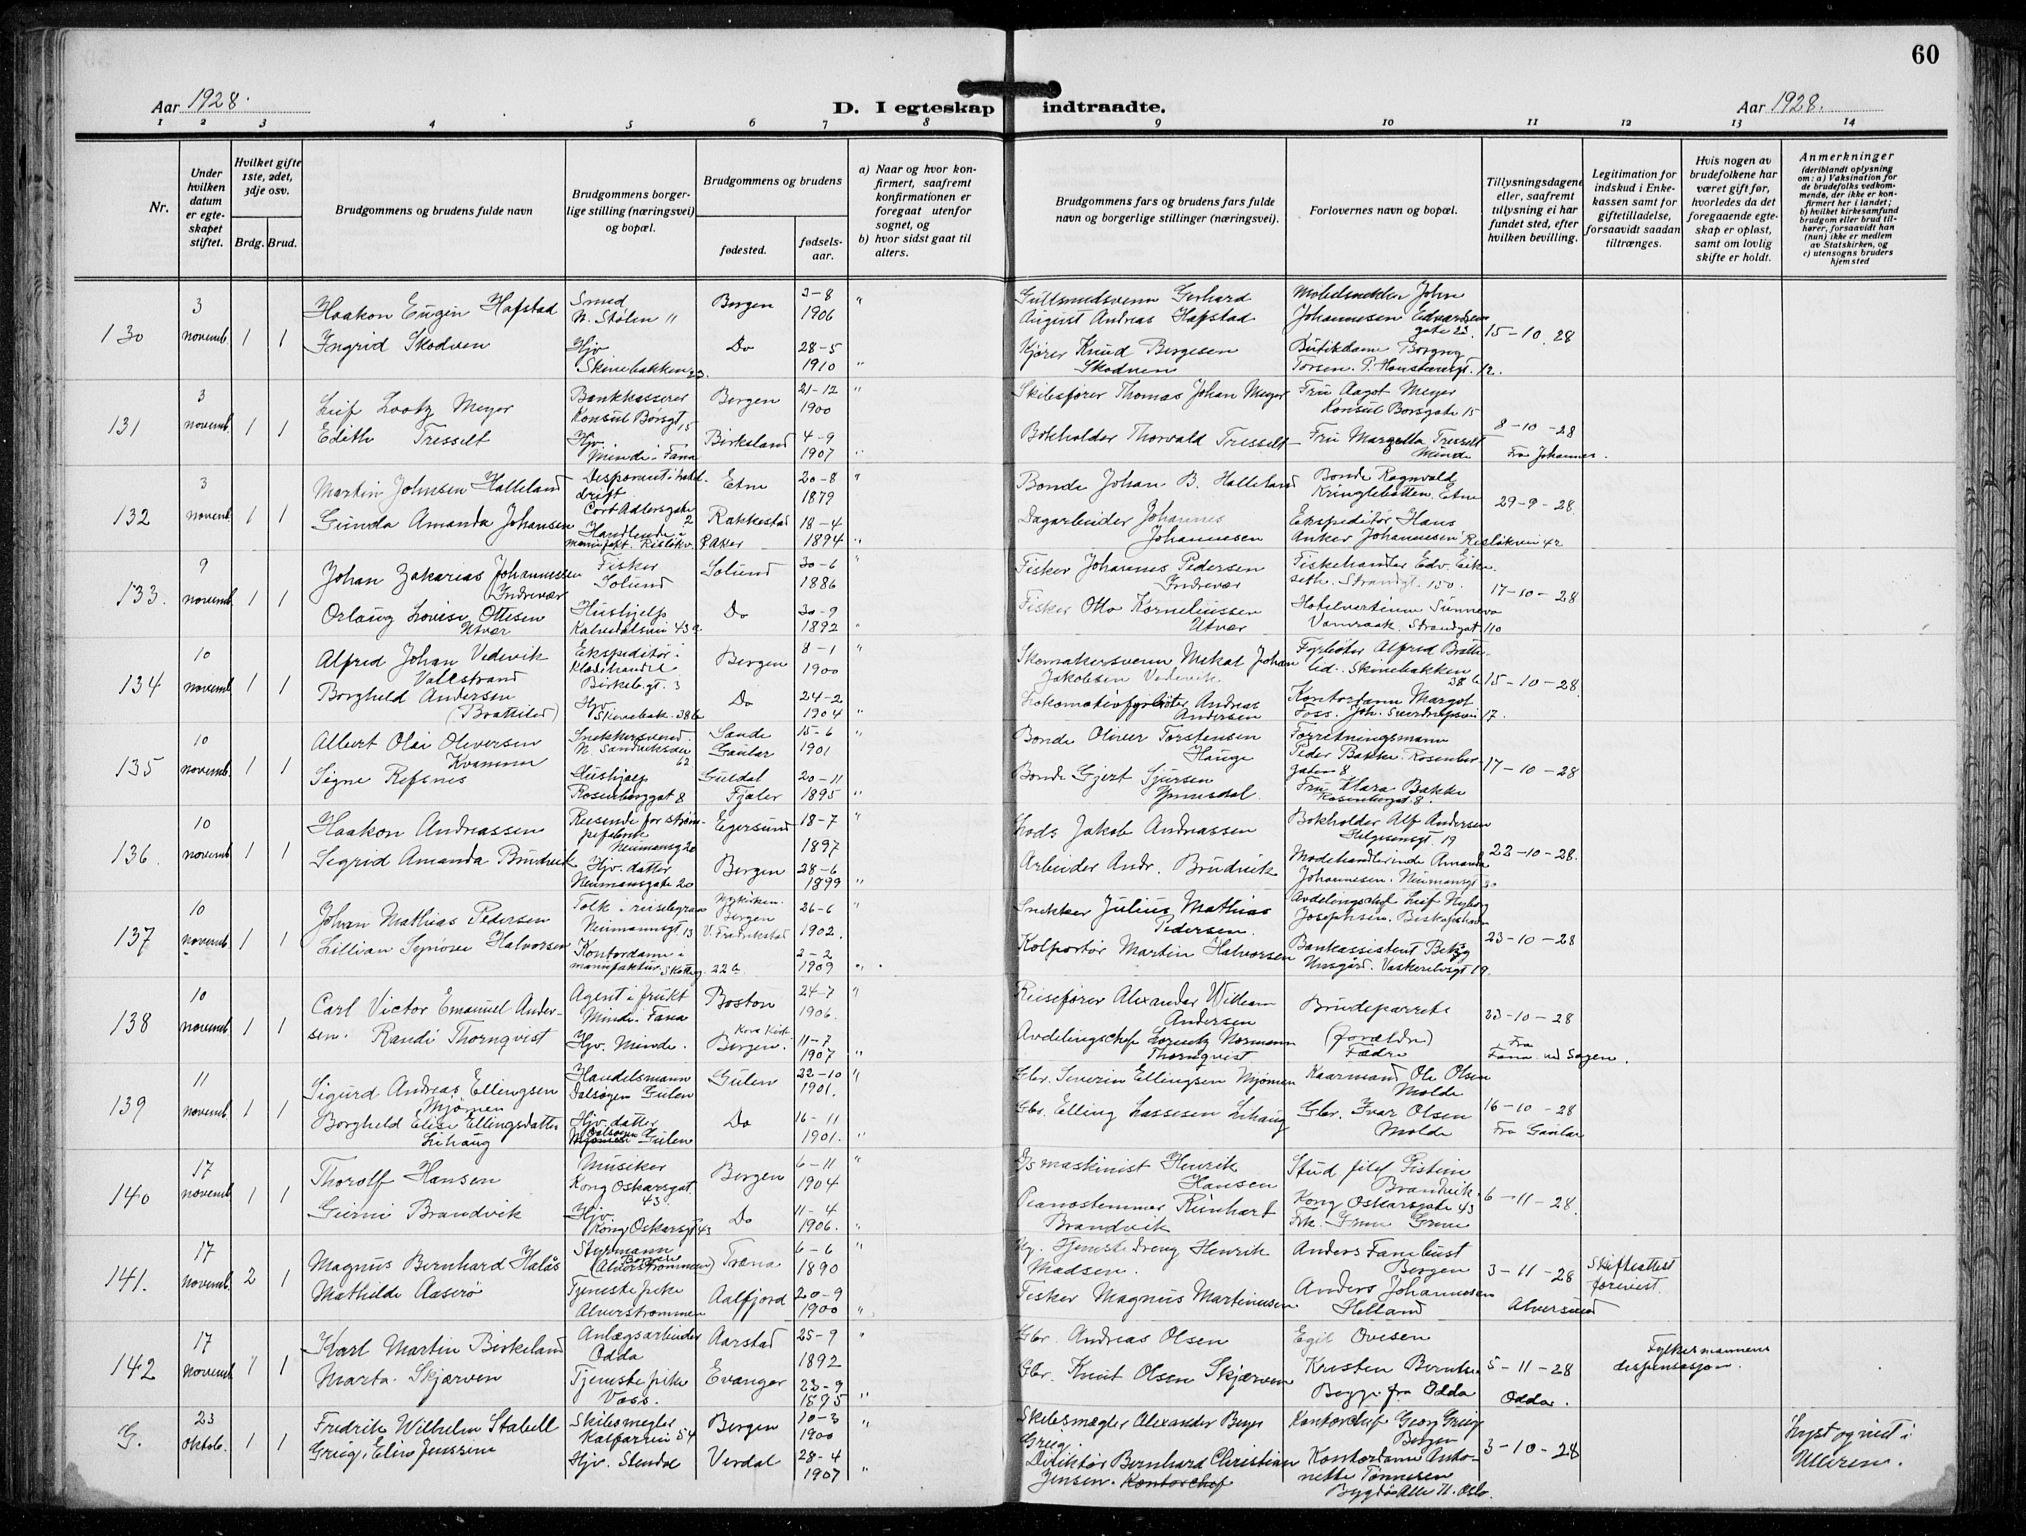 60
Aar 1928.
D. I egteskap indtraadte.
Aar 1928.
1 2 3 4 5 6 7 8 9 10 11 12 13 14
Nr.
Under hvilken datum er egteskapet stiftet.
Hvilket gifte 1ste, 2det, 3dje osv.
Brdg. Brud.
Brudgommens og brudens fulde navn
Brudgommens borgerlige stilling (næringsvei) og bopæl.
Brudgommens og brudens
fødested.
fødselsaar.
a) Naar og hvor konfirmert, saafremt konfirmationen er foregaat utenfor sognet, og
b) hvor sidst gaat til alters.
Brudgommens fars og brudens fars fulde navn og borgerlige stillinger (næringsvei).
Forlovernes navn og bopæl.
Tillysningsdagene eller, saafremt tillysning ei har fundet sted, efter hvilken bevilling.
Legitimation for indskud i Enkekassen samt for giftetilladelse, forsaavidt saadan tiltrænges.
Hvis nogen av brudefolkene har været gift før, hvorledes da det foregaaende egteskap er opløst, samt om lovlig skifte er holdt.
Anmerkninger
(deriblandt oplysning om: a) Vaksination for de brudefolks vedkommende, der ikke er konfirmert her i landet; b) hvilket kirkesamfund brudgom eller brud tilhører, forsaavidt han (hun) ikke er medlem av Statskirken, og c) utensogns bruders hjemsted
130 3 novemb. 1 1 Haakon Eugin Hafstad Smed N. Stølen " Bergen 3-8 1906 "
Gullsmedsvenn Gerhard August Andreas Hafstad
Johannesen Edvardsens gate 23. 15-10-28
Ingrid Skodven Hjv. Skivebakken 23. Do 28-5 1910 "
Kjører Knud Bergesen Skodven
Butikdame Borgny Torsen. 12.
131 3 novemb. 1 1 Leif Lootz Meyer Bankkasserer Konsul Børsgt 15 Bergen 21-12 1900 "
Skibsfører Thomas Johan Meyer
Fru Aagot Meyer Konsul Borsgate 15 8-10-28
Edith Tresselt Hjv. Minde-Fana Birkeland 4-9 1907 "
Bokholder Thorvald Tresselt
Fru Margetta Tresselt Minde Fra Johannes.
132 3 novemb. 1 1 Martin Johnsen Halleland Disponent i hotel-drift Cort Adlersgate 2 Etne 20-8 1879 "
Bonde Johan B. Halleland
Bonde Ragnvald Kringlebotten, Etne 29-9-28.
Gunda Amanda Johansen Handlende i manufakt. Risløkv. 8 Aker Rakkestad 18-4 1894 "
Dagarbeider Johannes Johannesen
Ekspeditør Hans Anker Johannesen Risløkveien 42
133. 9 novemb. 1 1 Johan Zakarias Johannessen Indrevær Fisker Solund Solund 30-6 1886 "
Fisker Johannes Pedersen Indrevær
Fiskehandler Edv. Eikeseth. Strandgt. 150. 17-10-28
Orlaug Lovise Ottesen Utvær Hushjelp Kalvedalsvei 43 a Do 30-9 1892 "
Fisker Otto Korneliussen Utvær
Hotelvertinne Sunneva Vamraak Strandgat 110
134 10 novemb. 1 1 Alfred Johan Vedevik Vallestrand Ekspeditør i klædehandel Birkeb.gt. 3 Bergen 8-1 1900 "
Skomakersvenn Mekal Johan Jakobsen Vedevik
Fyrbøter Alfred Brattelid. Skivebakken 38 b 15-10-28.
Borghild Andersen (Brattelid) Hjv. Skivebak. 38 b Do 24-2 1904 "
Lokomotivfyrbøter Andreas Andersen
Kontordame Margot Foss. Joh. 17.
135 10 novemb. 1 1 Albert Olai Oliversen Kvamme Snekkersvend. N. Sandviksvei 62 Sande Gaular 15-6 1901 "
Bonde Oliver Torstensen Hauge
Forretningsmann Peder Bakke. Rosenberggaten 8 17-10-28
Signe Refsnes Hushjelp Rosenberggat 8 Guddal Fjaler 20-11 1895 "
Bonde Gjert Sjursen Ypnesdal.
Fru Klara Bakke Rosenberggt 8.
136. 10 novemb. 1 1 Haakon Andreassen Reisende for strømpefabrik Neumansg 20 Egersund 18-7 1897 "
Lods Jakob Andreassen
Bokholder Alf Andersen Helgesensgt. 19 22-10-28.
Sigrid Amanda Brudvik Hjv. datter Neumansgate 20 Bergen 28-6 1899 "
Arbeider Andr. Brudvik
Modehandlerinde Amanda Johannesen. Neumansgt 20
137 10 novemb. 1 1 Johan Mathias Pedersen Tolk i reisebyraa Neumannsgt 13 Nykirken. Bergen 26-6 1902. "
Snekker Julius Mathias Pedersen.
Avdelingschef Leif Nyborg Josephsen. 23-10-28
Lillian Synøve Halvorsen Kontordame i manufaktur. Skotteg. 22 b V. Fredrikstad 2-2 1909 "
Kolportør Martin Halvorsen
Bankassistent Betzy Unsgård. Vaskerelvsgt 19.
138 10 novemb. 1 1 Carl Victor Emanuel Andersen. Agent i frukt Minde-Fana Boston 24-7 1906. "
Reisefører Alexander William Andersen
Brudeparrets (forældre) Fædre 23-10-28 Fra Fana ved Sogn.
Randi Thornqvist Hjv. Minde. Kors Kirk. Bergen. 11-7 1907 "
Avdelingschef Lorentz Normann Thornqvist
139 11 novemb. 1 1 Sigurd Andreas Ellingsen Mjømen Handelsmann Dalsøyen Gulen Gulen 22-10 1901. "
Gbr. Severin Ellingsen Mjømen
Kaarmand Ole Olsen Molde 16-10-28
Borghild Elise Ellingsdatter Lihaug Hjv. datter Dalsøyen Mjømen Gulen Do 16-11 1901. "
Gbr. Elling Lassesen Lihaug
Gbr. Ivar Olsen Molde Fra Gaular
140 17 novemb. 1 1 Thorolf Hansen Musiker Kong Oskarsgat. 43. Bergen 6-11 1904 "
maskinist Henrik Hansen
Stud. filol Pistine Brandvik. Kong Oskarsgate 43 6-11-28.
Gierni Brandvik Hjv. Kong Oskarsgt 43 Do 11-4 1906. "
Pianostemmer Reinhart Brandvik
Frk.
141. 17 novemb. 2 1 Magnus Bernhard Halås Styrmann Bergen (Alverstrømmen) Træna 6-6 1890 "
Ug. Tjenestedreng Henrik Madsen.
Anders Fanebust Bergen 3-11-28 Skifteattest forevist.
Mathilde Aaserø Tjenestepike Alverstrømmen Aalfjord 20-9 1900 "
Fisker Magnus Martinussen
Anders Johannesen Helland Alversund
142 17 novemb. 1 1 Karl Martin Birkeland Anlægsarbeider Odda Aarstad 25-9 1892 "
Gbr. Andreas Olsen
Egil Ovesen 5-11-28 Fylkesmannens dispensasjon.
Marta Skjærven Tjenestepike Voss. Evanger 23-9 1895 "
Gbr. Knut Olsen Skjærven
Kristen Berntsen fra Odda Odda.
G. 23 oktob. 1 1 Fredrik Wilhelm Stabell Grieg, Skibsmegler Kalfarvein 54 Bergen 10-3 1900 "
Skibsmægler Alexander Beyer Grieg.
Kontorchef Georg Grieg Bergen 3-10-28 Lyst og viet i Ullern.
Elin Jenssen Hjv. Stendal Verdal 28-4 1907 "
Direktør Bernhard Christian Jensen. Kontorchef
Kontordame Antonette Tønnesen Bygdø Alle 71. Oslo.